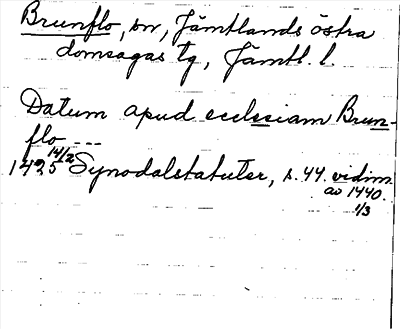 Brunflo, sn, Jämtlands östra
domsagas tg, Jämtl. l.
Datum apud ecclesiam Brun-
flo ---
14/2
1425 Synodalstatuter, s. 44. vidim.
av 1440.
1/3